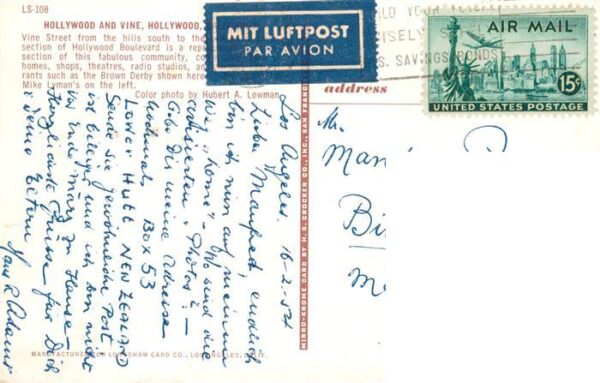 LS-108
HOLLYWOOD AND VINE, HOLLYWOOD,
Vine Street from the hills south to the
section of Hollywood Boulevard is a
section of this fabulous community, co
homes, shops, theatres, radio studios, a
rants such as the Brown Derby shown here
Mike Lyman's on the left.
Color photo by Hubert A. Lowman.
MIT LUFTPOST
PAR AVION
S. SAVINGS BONDS
AIR MAIL
15¢
UNITED STATES POSTAGE
address
MIRRO-KROME CARD BY H. S. CROCKER CO., INC., SAN FRAN
Los Angeles. 16-2.54
Lieber Manfred, endlich
bin ich nun auf meinem
Way "home" - Wo sind die
Photos? -
Gib Dir meine Adresse
nochmals, Box 53
Lower Hutt NEW ZEALAND
Sende sie gewöhnliche Post
ist billiger und ich bin nicht
vor Ende März zu Hause -
Herzlichste Grüsse für Dich
u. Deine Eltern
Hans R Adams
Mr.
Man
Bi
M
MANUFACTURED FOR LONGSHAW CARD CO., LOS ANGELES, CALIF.